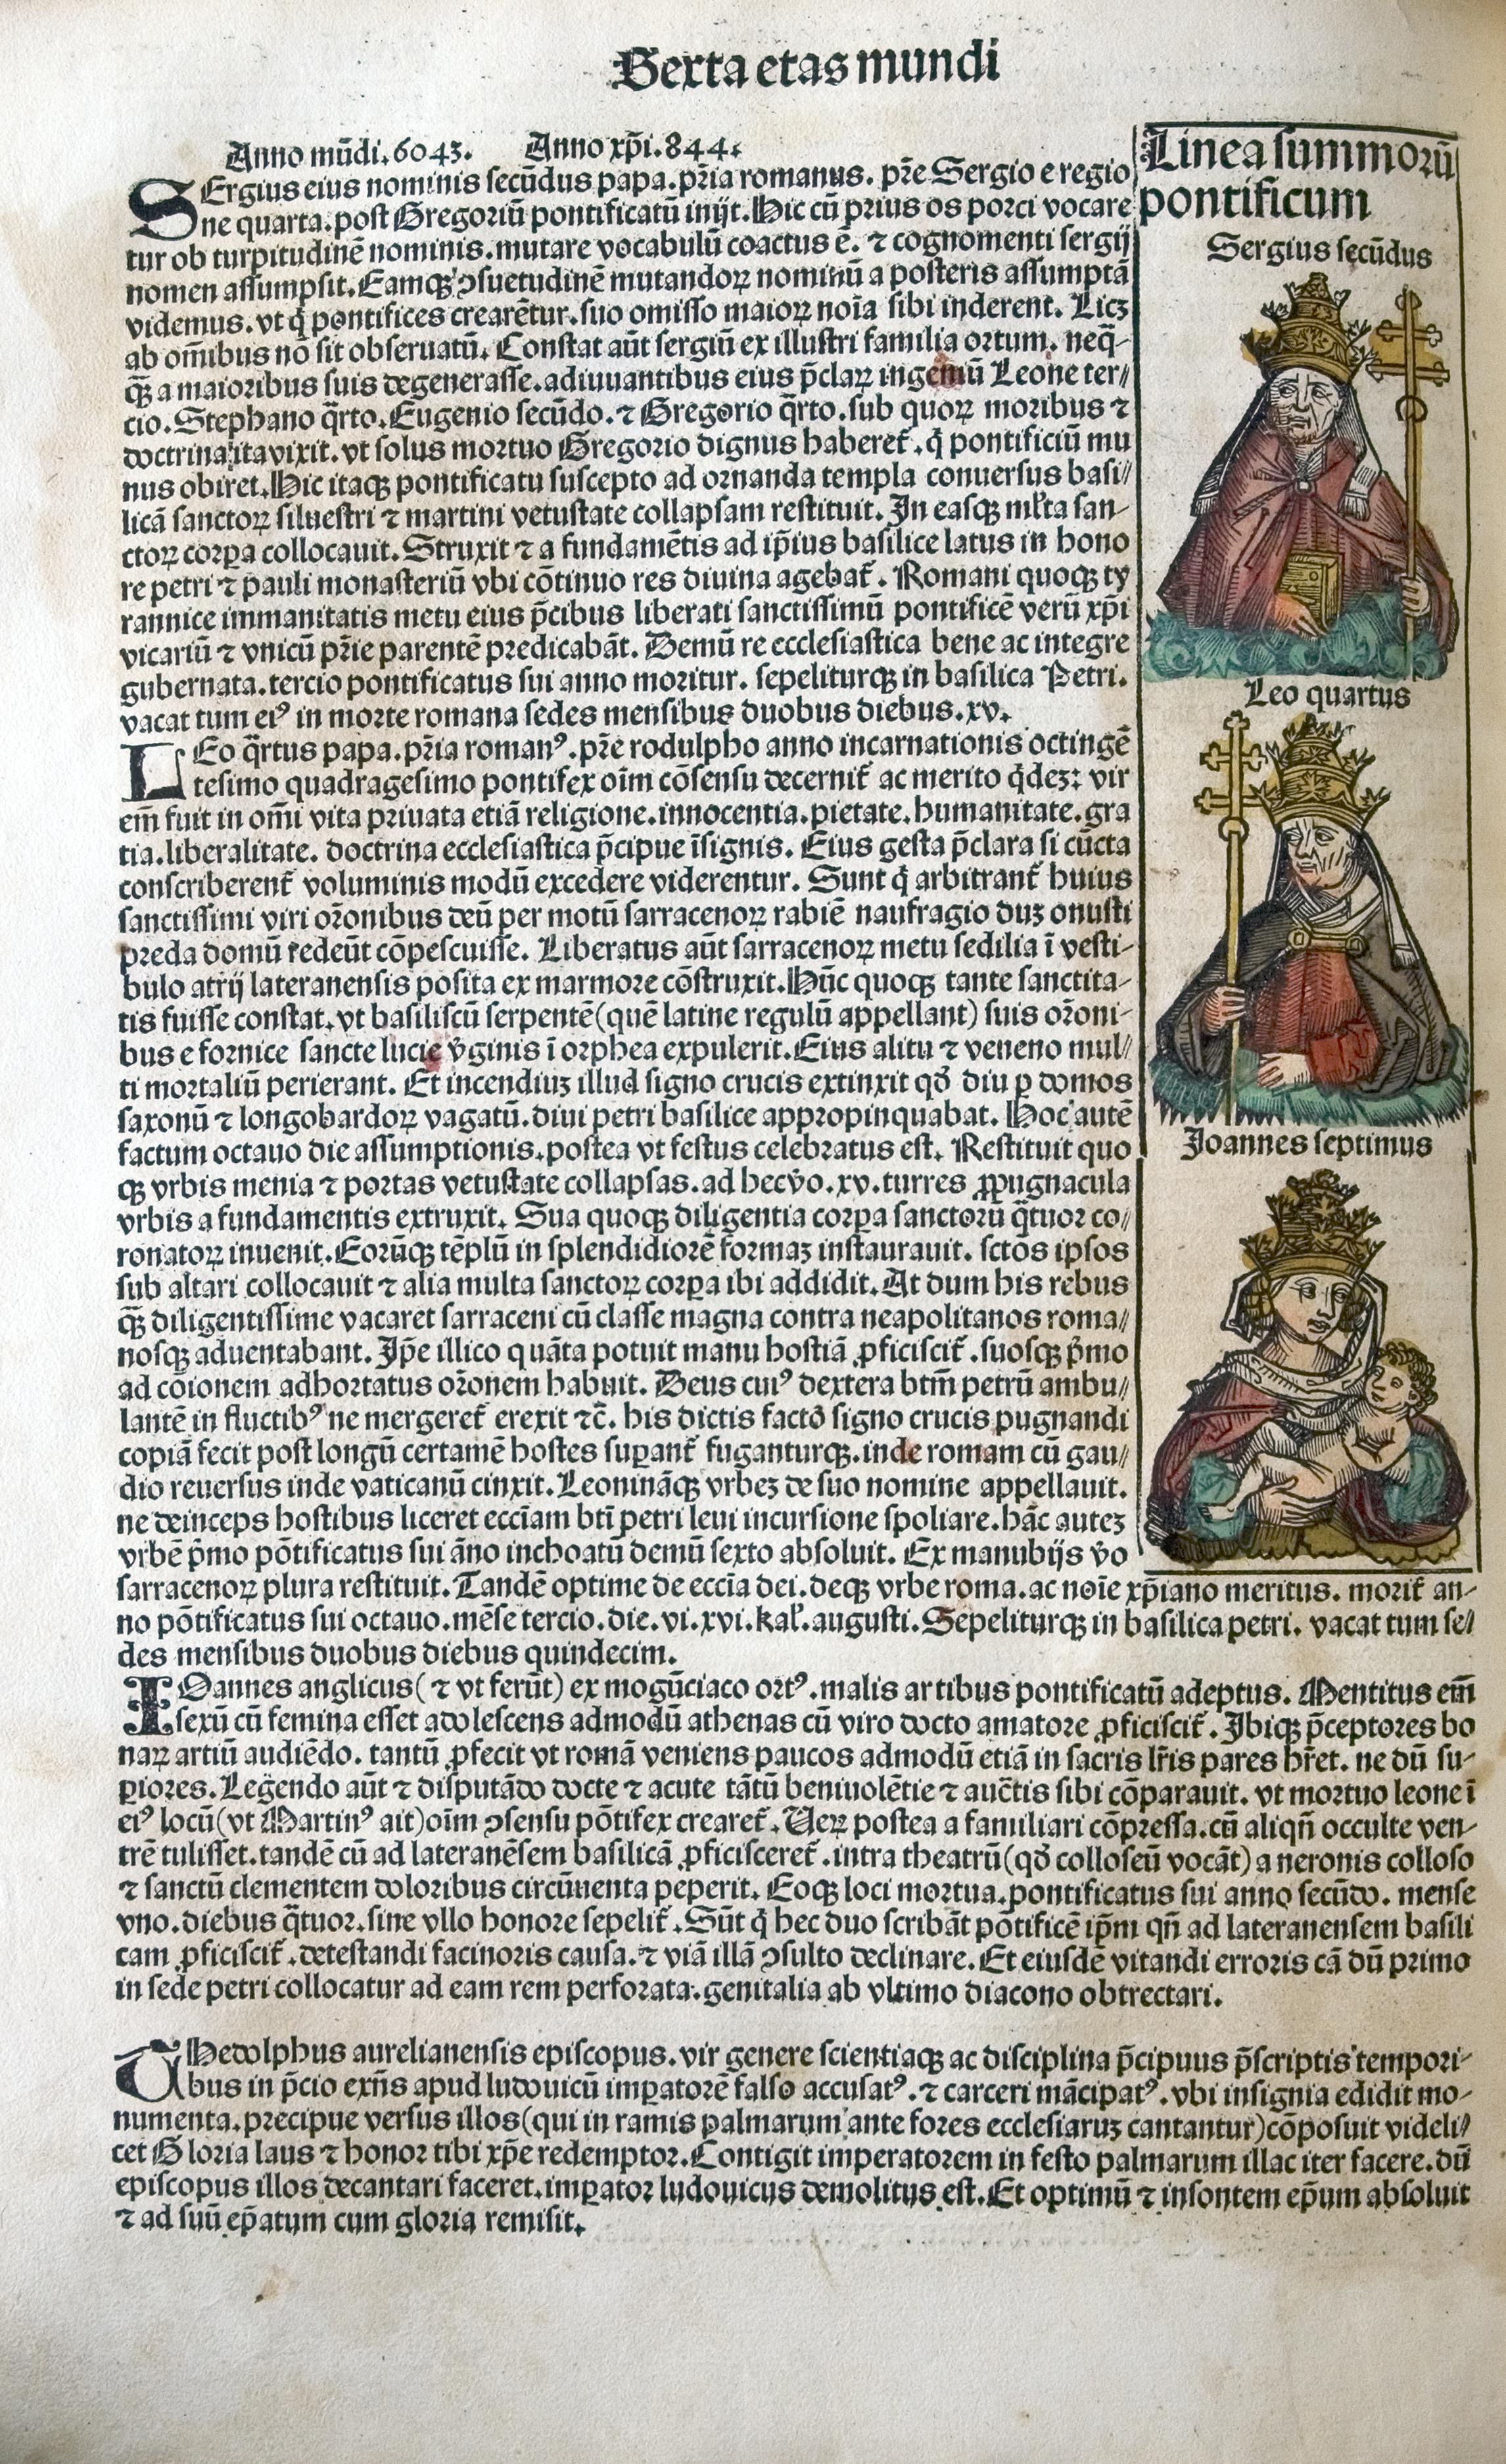 Sexta etas mundi
Anno mūdi.6043. Anno xp̄i.844.
SErgius eius nominis secūdus papa.p̄ria romanus. p̄re Sergio e regio
ne quarta.post Gregoriū pontificatū inijt.Hic cū prius os porci vocare
tur ob turpitudinē nominis.mutare vocabulū coactus ē. ⁊ cognomenti sergij
nomen assumpsit.Eamqꝫ ↄsuetudinē mutandoꝝ nominū a posteris assumptā
videmus.vt q̇ pontifices crearētur.suo omisso maioꝝ noīa sibi inderent. Licꝫ
ab om̄ibus nō sit obseruatū. Constat aūt sergiū ex illustri familia ortum. neq̄-
qꝫ a maioribus suis degenerasse.adiuuantibus eius p̄claꝝ ingeniū Leone ter//
cio.Stephano q̄rto.Eugenio secūdo.⁊ Gregorio q̄rto.sub quoꝝ moribus ⁊
doctrina ita vixit.vt solus mortuo Gregorio dignus haberet̄.q̇ pontificiū mu
nus obiret.Hic itaqꝫ pontificatu suscepto ad ornanda templa conuersus basi//
licā sanctoꝝ siluestri ⁊ martini vetustate collapsam restituit. In easqꝫ ml̄ta san-
ctoꝝ corꝑa collocauit.Struxit ⁊ a fundamētis ad ip̄ius basilice latus in hono
re petri ⁊ pauli monasteriū vbi cōtinuo res diuina agebat̄. Romani quoqꝫ ty
rannice immanitatis metu eius p̄cibus liberati sanctissimū pontificē verū xp̄i
vicariū ⁊ vnicū p̄rie parentē predicabāt. Demū re ecclesiastica bene ac integre
gubernata.tercio pontificatus sui anno moritur. sepeliturqꝫ in basilica Petri.
vacat tum eiꝰ in morte romana sedes mensibus duobus diebus.xv.
LEo q̄rtus papa.p̄ria romanꝰ.p̄re rodulpho anno incarnationis octingē
tesimo quadragesimo pontifex oīm cōsensu decernit̄ ac merito q̇deꝫ: vir
em̄ fuit in om̄i vita priuata etiā religione.innocentia.pietate.humanitate.gra
tia.liberalitate. doctrina ecclesiastica p̄cipue īsignis. Eius gesta p̄clara si cūcta
conscriberent̄ voluminis modū excedere viderentur. Sunt q̇ arbitrant̄ huius
sanctissimi viri orōnibus deū per motū sarracenoꝝ rabiē naufragio duꝫ onusti
preda domū redeūt cōpescuisse. Liberatus aūt sarracenoꝝ metu sedilia ī vesti-
bulo atrij lateranensis posita ex marmore cōstruxit.Hūc quoqꝫ tante sanctita-
tis fuisse constat.vt basiliscū serpentē(quē latine regulū appellant) suis orōni-
bus e fornice sancte lucie v̇ginis ī orphea expulerit.Eius alitu ⁊ veneno mul//
ti mortaliū perierant. Et incendiuꝫ illud signo crucis extinxit qđ diu ꝑ domos
saxonū ⁊ longobardoꝝ vagatū.diui petri basilice appropinquabat. Hoc autē
factum octauo die assumptionis.postea vt festus celebratus est. Restituit quo
qꝫ vrbis menia ⁊ portas vetustate collapsas.ad hec v̇o.xv.turres ꝓpugnacula
vrbis a fundamentis extruxit. Sua quoqꝫ diligentia corꝑa sanctorū q̄tuor co//
ronatoꝝ inuenit.Eorūqꝫ tēplū in splendidiorē formaꝫ instaurauit. sctōs ipsos
sub altari collocauit ⁊ alia multa sanctoꝝ corꝑa ibi addidit. At dum his rebus
qꝫ diligentissime vacaret sarraceni cū classe magna contra neapolitanos roma//
nosqꝫ aduentabant. Ip̄e illico quāta potuit manu hostiā ꝓficiscit̄.suosqꝫ p̄mo
ad cōionem adhortatus orōnem habuit. Deus cuiꝰ dextera btm̄ petrū ambu//
lantē in fluctibꝰ ne mergeret̄ erexit ⁊c̄. his dictis factō signo crucis pugnandi
copiā fecit post longū certamē hostes suꝑant̄ fuganturqꝫ.inde romam cū gau//
dio reuersus inde vaticanū cinxit.Leonināqꝫ vrbeꝫ de suo nomine appellauit.
ne deinceps hostibus liceret ecciām bti̅ petri leui incursione spoliare.hāc auteꝫ
vrbē p̄mo pōtificatus sui āno inchoatū demū sexto absoluit. Ex manubijs v̇o
sarracenoꝝ plura restituit.Tandē optime de ecciā dei.deqꝫ vrbe roma.ac noīe xp̄iano meritus. morit̄ an-
no pōtificatus sui octauo.mēse tercio.die.vi.xvi.kal̄.augusti.Sepeliturqꝫ in basilica petri. vacat tum se//
des mensibus duobus diebus quindecim.
IOannes anglicus(⁊ vt ferūt) ex mogūciaco ortꝰ.malis artibus pontificatū adeptus. Mentitus em̄
sexū cū femina esset adolescens admodū athenas cū viro docto amatore ꝓficiscit̄. Ibiqꝫ p̄ceptores bo
naꝝ artiū audiēdo. tantū ꝓfecit vt romā veniens paucos admodū etiā in sacris lr̄is pares hr̄et. ne dū su-
ꝑiores. Legendo aūt ⁊ disputādo docte ⁊ acute tātū beniuolētie ⁊ auctīs sibi cōparauit. vt mortuo leone ī
eiꝰ locū(vt Martinꝰ ait)oīm ↄsensu pōtifex crearet̄. Ueꝝ postea a familiari cōpressa.cū aliqn̄ occulte ven-
trē tulisset.tandē cū ad lateranēsem basilicā ꝓficisceret̄.intra theatrū(qđ colloseū vocāt) a neronis colloso
⁊ sanctū clementem doloribus circūuenta peperit. Eoqꝫ loci mortua.pontificatus sui anno secūdo. mense
vno.diebus q̄tuor.sine vllo honore sepelit̄. Sūt q̇ hec duo scribāt pōtificē ip̄m qn̄ ad lateranensem basili
cam ꝓficiscit̄.detestandi facinoris causa.⁊ viā illā ↄsulto declinare. Et eiusdē vitandi erroris cā dū primo
in sede petri collocatur ad eam rem perforata:genitalia ab vltimo diacono obtrectari.
THedolphus aurelianensis episcopus.vir genere scientiaqꝫ ac disciplina p̄cipuus p̄scriptis tempori-
bus in p̄cio exn̄s apud ludouicū imꝑatorē falso accusatꝰ.⁊ carceri mācipatꝰ.vbi insignia edidit mo-
numenta.precipue versus illos(qui in ramis palmarum ante fores ecclesiaruꝫ cantantur)cōposuit videli//
cet Gloria laus ⁊ honor tibi xp̄e redemptor.Contigit imperatorem in festo palmarum illac iter facere.dū
episcopus illos decantari faceret.imꝑator ludouicus demolitus est.Et optimū ⁊ insontem ep̄um absoluit
⁊ ad suū ep̄atum cum gloria remisit.
Linea summorū
pontificum
Sergius secūdus
Leo quartus
Joannes septimus